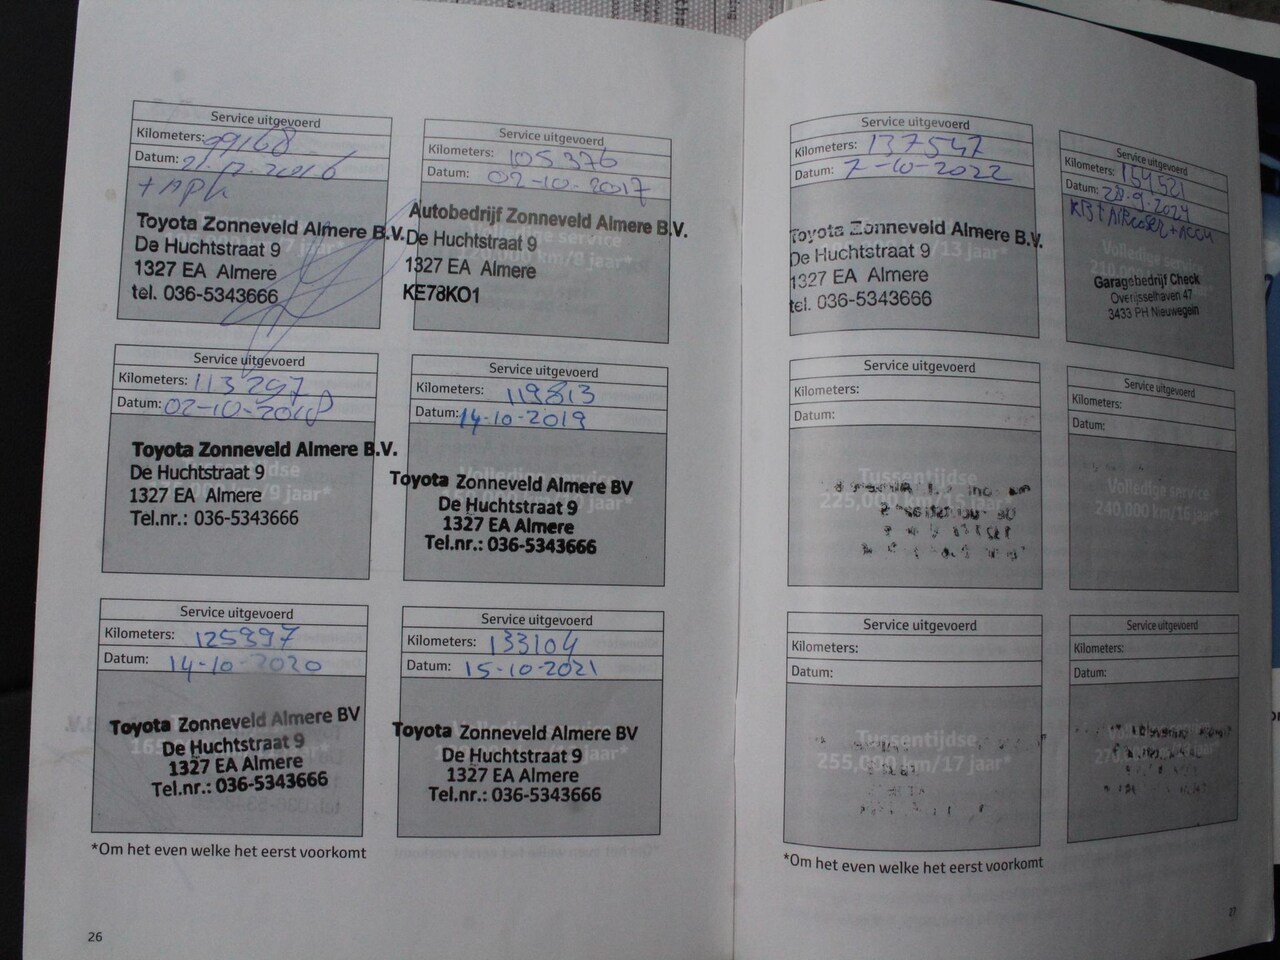 Service uitgevoerd
Kilometers: 99168
Datum: 21-12-2016
+ APK
Toyota Zonneveld Almere B.V.
De Huchtstraat 9
1327 EA Almere
tel. 036-5343666
Service uitgevoerd
Kilometers: 105376
Datum: 02-10-2017
Volledige service
120,000 km/8 jaar*
Autobedrijf Zonneveld Almere B.V.
De Huchtstraat 9
1327 EA Almere
KE78KO1
Service uitgevoerd
Kilometers: 113297
Datum: 02-10-2018
Toyota Zonneveld Almere B.V.
De Huchtstraat 9
1327 EA Almere
Tel.nr.: 036-5343666
Service uitgevoerd
Kilometers: 119813
Datum: 14-10-2019
Volledige service
Toyota Zonneveld Almere BV
De Huchtstraat 9
1327 EA Almere
Tel.nr.: 036-5343666
Service uitgevoerd
Kilometers: 125997
Datum: 14-10-2020
Toyota Zonneveld Almere BV
De Huchtstraat 9
1327 EA Almere
Tel.nr.: 036-5343666
Service uitgevoerd
Kilometers: 133104
Datum: 15-10-2021
Toyota Zonneveld Almere BV
De Huchtstraat 9
1327 EA Almere
Tel.nr.: 036-5343666
*Om het even welke het eerst voorkomt
26
Service uitgevoerd
Kilometers: 137547
Datum: 7-10-2022
Toyota Zonneveld Almere B.V.
De Huchtstraat 9
1327 EA Almere
tel. 036-5343666
Service uitgevoerd
Kilometers: 154521
Datum: 28-9-2024
Volledige service
Garagebedrijf Check
Overijsselhaven 47
3433 PH Nieuwegein
Service uitgevoerd
Kilometers:
Datum:
Tussentijdse
225,000 km/15 jaar*
Service uitgevoerd
Kilometers:
Datum:
Volledige service
240,000 km/16 jaar*
Service uitgevoerd
Kilometers:
Datum:
Tussentijdse
255,000 km/17 jaar*
Service uitgevoerd
Kilometers:
Datum:
*Om het even welke het eerst voorkomt
27